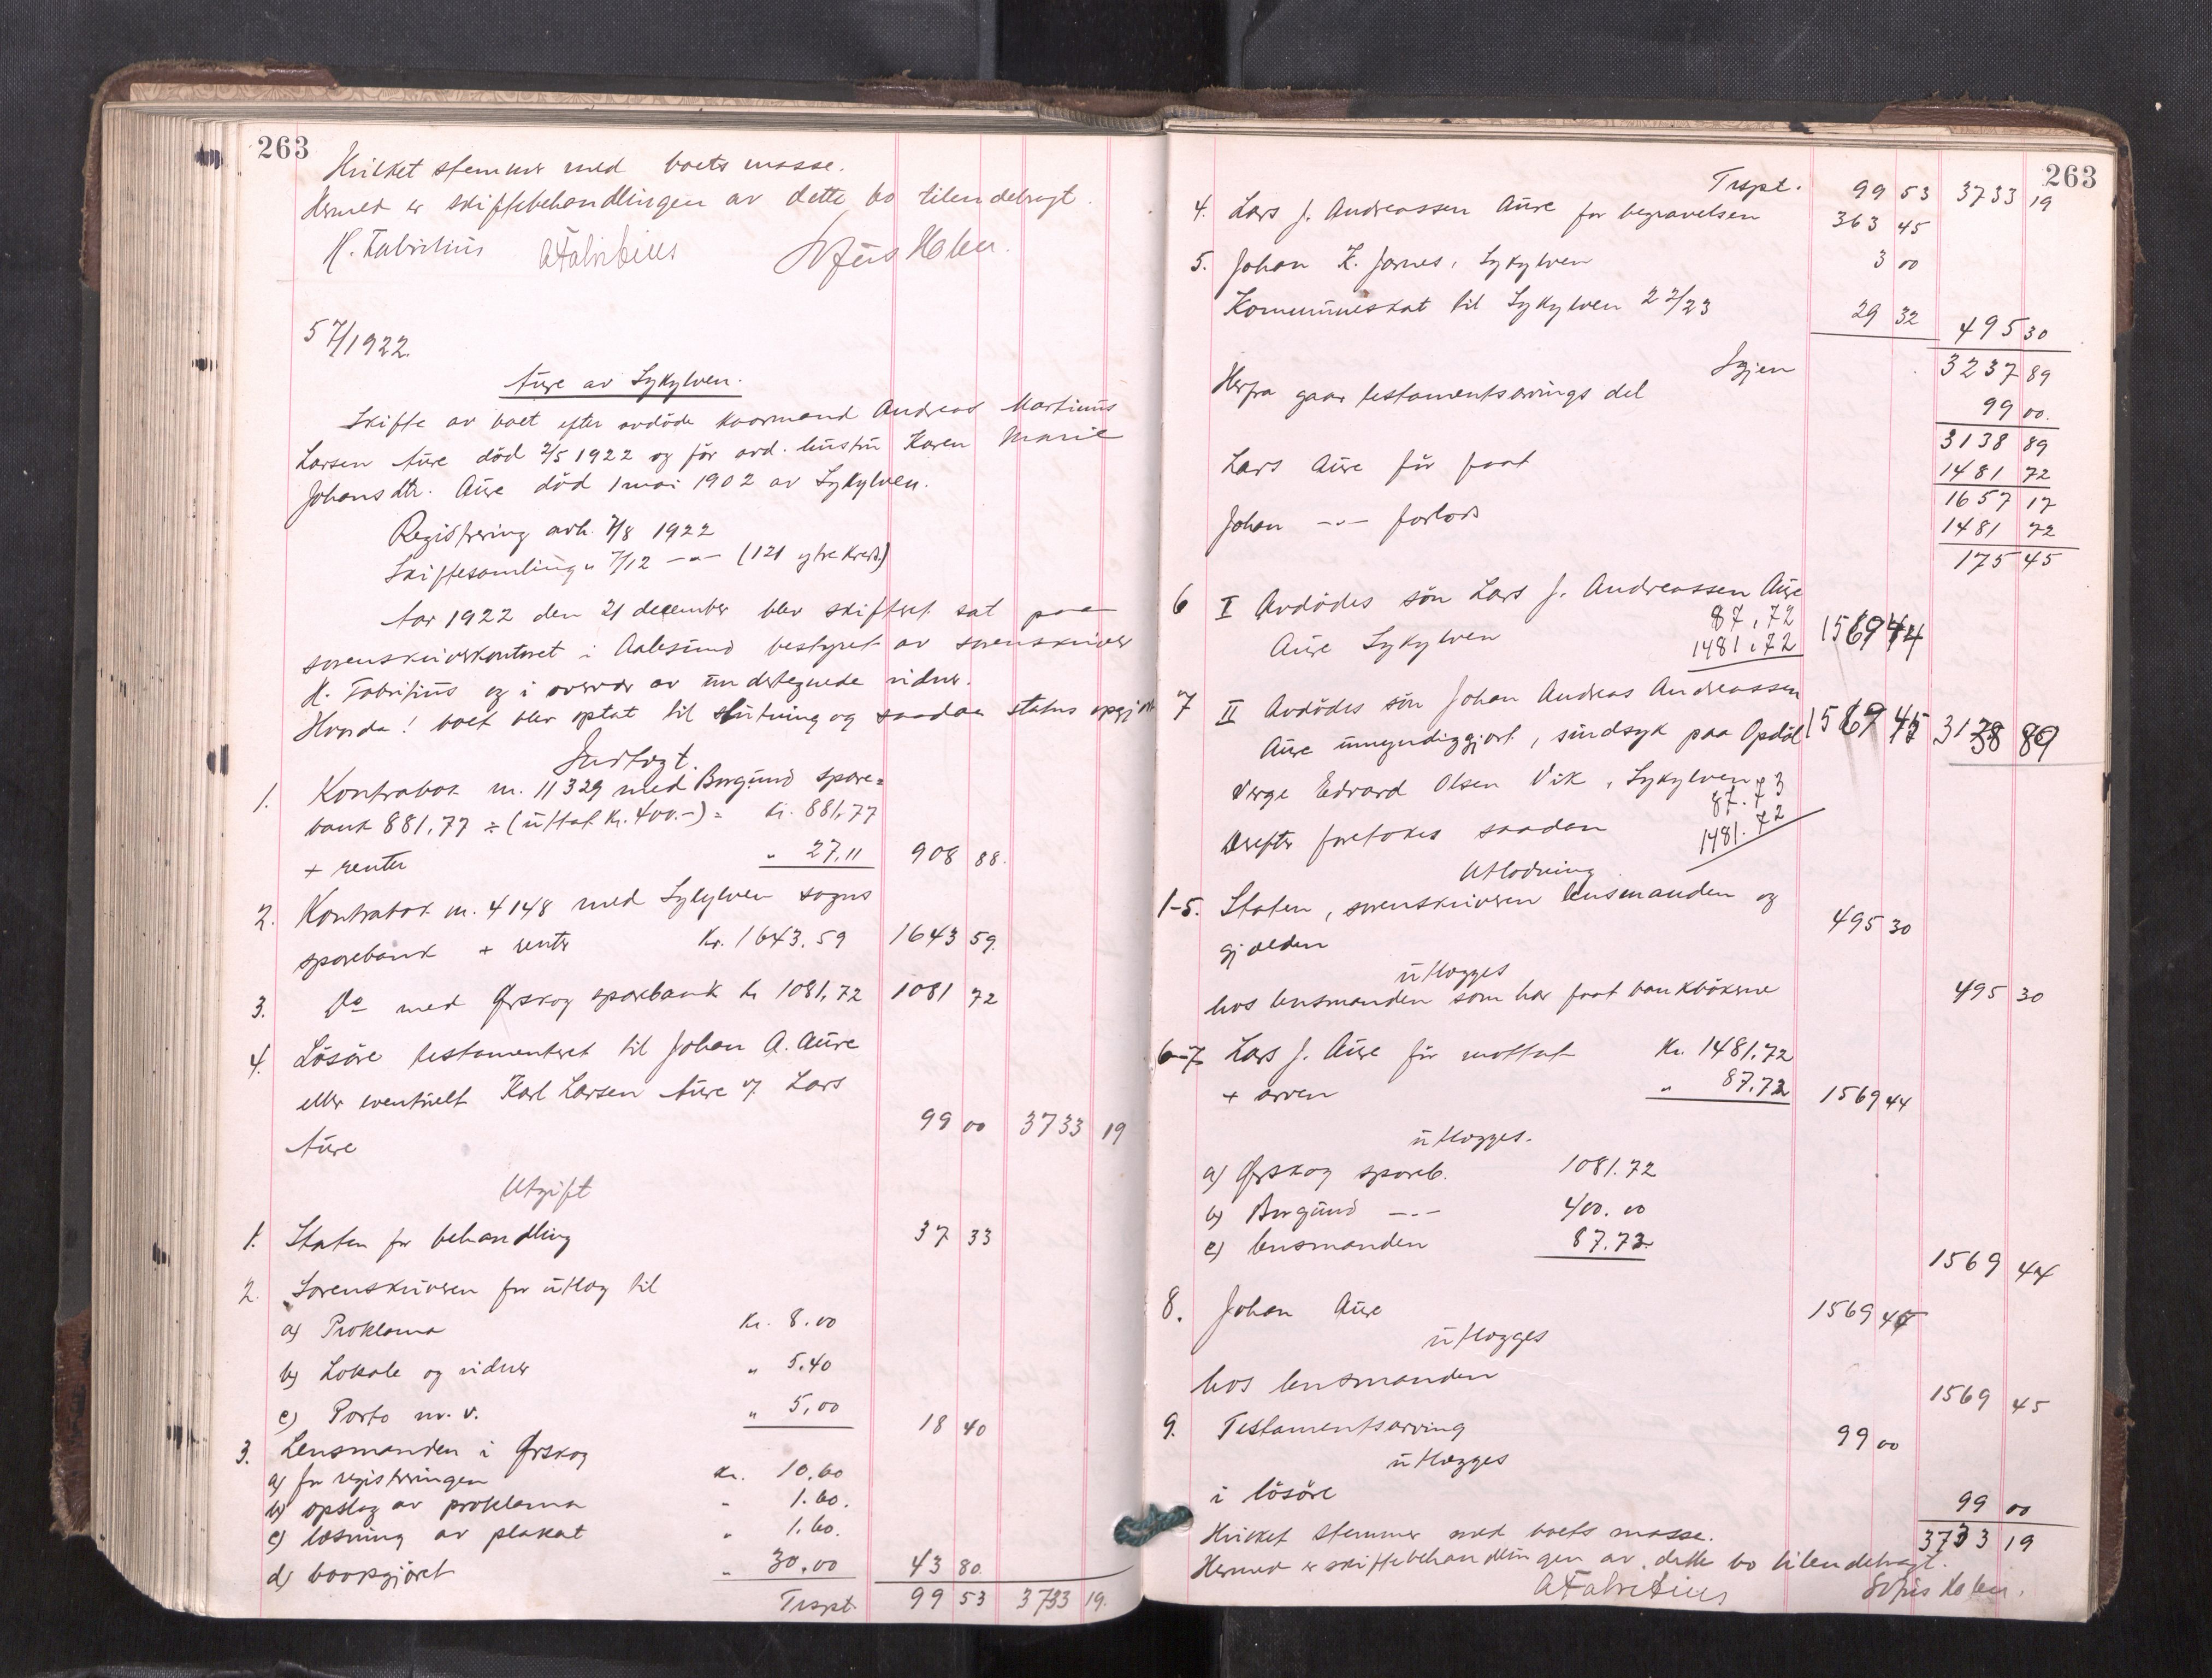 263
Hvilket stemmer med boets masse.
Hermed er skiftebehandlingen av dette bo tilendebragt.
H. Fabritius AFabritius Sofus Holm.
57/1922.
Aure av Sykylven.
Skifte av boet efter avdöde kaarmand Andreas Martinus
Larsen Aure död 2/5 1922 og för avd. hustru Karen Marie
Johansdtr. Aure död 1 mai 1902 av Sykylven.
Registrering avh. 7/8 1922
Skiftesamling " 7/12 -"- (121 ytre kreds.)
Aar 1922 den 21 december blev skifteret sat paa
sorenskriverkontoret i Aalesund bestyret av sorenskriver
H. Fabritius og i overvær av undertegnede vidner.
Hvorda! boet blev optat til slutning og saadan status opgjort
Indtægt.
1. Kontrabok nr. 11329 med Borgund spare=
bank 881,77 ÷ (uttat kr. 400.-) = Kr. 881,77
+ renter " 27,11 908 88.
2. Kontrabok nr. 4148 med Sykylven sogns
sparebank + renter Kr. 1643.59 1643 59.
3. Do med Ørskog sparebank kr 1081,72 1081 72
4. Lösöre testamenteret til Johan A. Aure
eller eventuelt Karl Larsen Aure og Lars
Aure 99 00 3733 19
Utgift
1. Staten for behandling 37 33
2. Sorenskriveren for utlæg til
a) Proklama Kr. 8.00
b) Lokale og vidner " 5.40
c) Porto m.v. " 5,00 18 40
3. Lensmanden i Ørskog
a) for registreringen Kr. 10.60
b) opslag av proklama - 1.60.
c) læsning av plakat " 1.60.
d) boopgjöret - 30.00 43 80.
Trspt. 99 53 3733 19.
263
Trspt. 99 53 3733 19
4. Lars J. Andreassen Aure for begravelsen 363 45
5. Johan K. Jarnes, Sykylven 3 00
Kommuneskat til Sykylven 22/23 29 32 495 30
Igjen 3237 89
Herfra gaar testamentsarvings del 99 00.
3138 89
Lars Aure för faat 1481 72
1657 17
Johan -"- forlods 1481 72
175 45
6 I Avdödes sön Lars J. Andreassen Aure
Aure Sykylven 87,72
1481,72 1569 44
7 II Avdödes sön Johan Andreas Andreassen
Aure umyndiggjort, sindsyk paa Opdöl 1569 45 3138 89
Verge Edvard Olsen Vik, Sykylven 87.73
Derefter foretokes saadan 1481.72
Utlodning
1-5. Staten, sorenskriveren lensmanden og
gjælden 495 30
utlægges
hos lensmanden som har faat bankbökerne 495 30
6-7 Lars J. Aure för mottat Kr. 1481,72
+ arven " 87.72 1569 44
utlægges.
a) Ørskog spareb. 1081.72
b) Borgund -"- 400.00
c) lensmanden 87.72
1569 44
8. Johan Aure 1569 45
utlægges
hos lensmanden 1569 45
9. Testamentsarving 99 00
utlægges
i lösöre 99 00
Hvilket stemmer med boets masse. 3733 19
Hermed er skiftebehandlingen av dette bo tilendebragt.
AFabritius Sofus Holm.